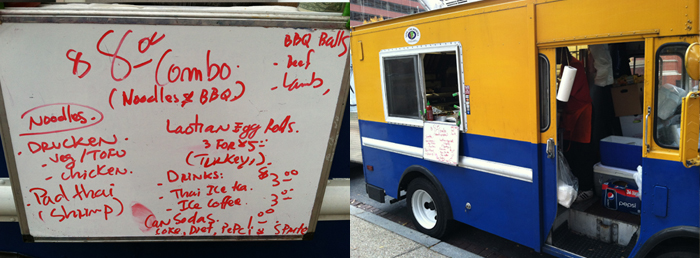 $ 8.00 Combo.
(Noodles & BBQ)
BBQ Balls
- Beef
- Lamb,
Noodles.
- Drucken
- Veg/Tofu
- Chicken.
- Pad thai
(Shrimp)
Laotian Egg Rolls.
3 FOR $5-
(Turkey,)
- Drinks:
- Thai Ice tea. $3.00
- Ice Coffee. 3.00
Can Sodas. 1.00
Coke, Diet, Pepci &
pepsi